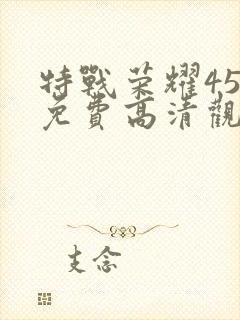 特戰荣耀45
免費高清觀
支念